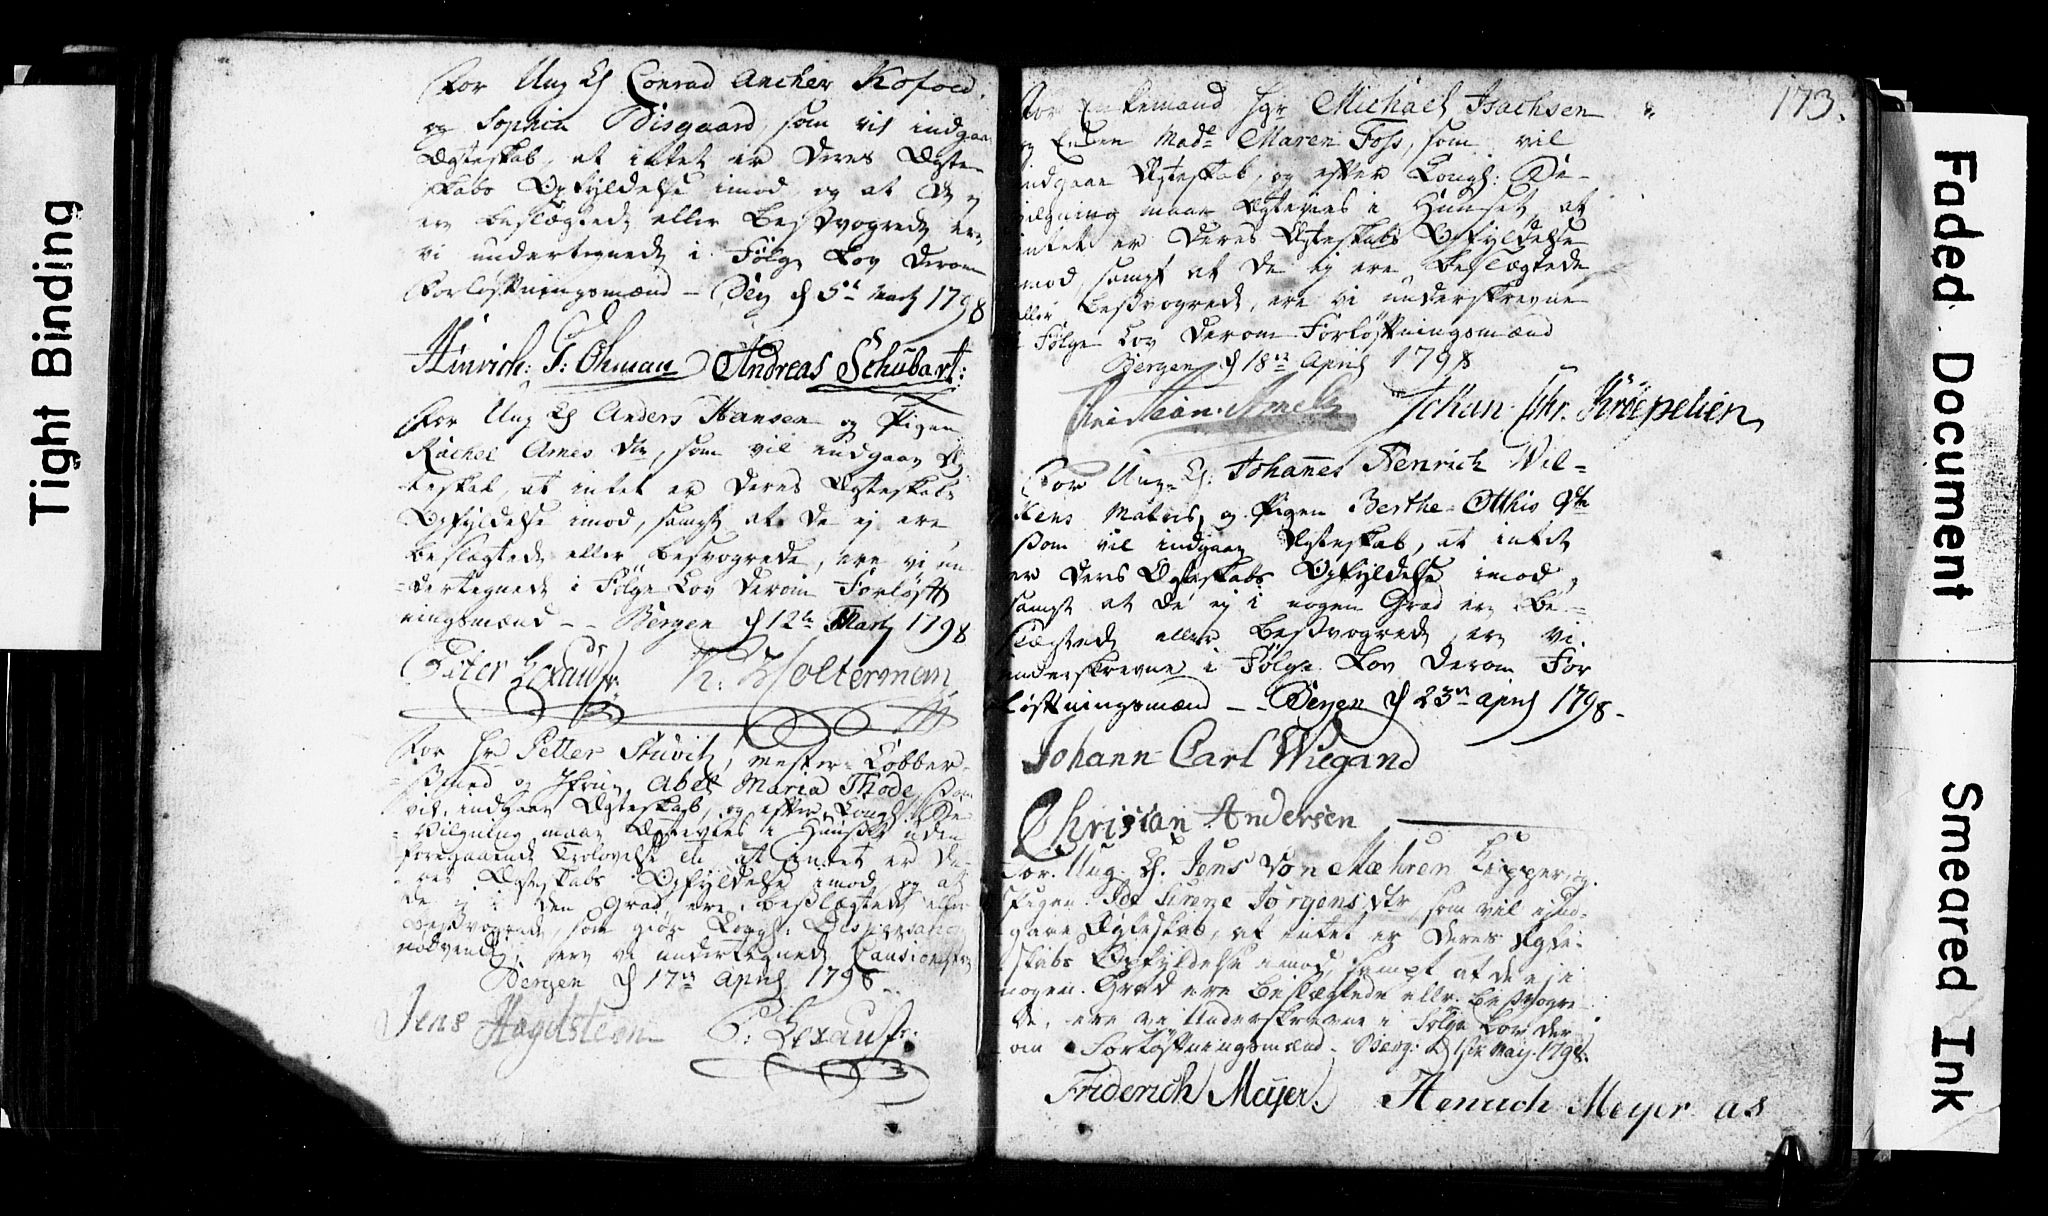 Tight Binding
For Ung K Conrad Ancher Kofoed
og Sophia Bisgaard, som vil indgaa
Ægteskab, at intet er Deres Ægte-
skabs Opfyldelse imod, og at de ej
ere beslægtede eller Besvogrede ere
vi undertegnede i Følge Lov Derom
Forløftningsmænd - d 5t Marty 1798
Hinrich: G: Ohman Andreas Schubart:
For Ung K Anders Hansen og Pigen
Rachel Arnes dtr, som vil indgaae Æg
teskab, at intet er Deres Ægteskabs
Opfyldelse imod, sampt at De ej ere
beslægtede eller besvogrede, ere vi un
dertegnede i Følge Lov Derom Forløft
ningsmænd - - Bergen d 12te Marty 1798
Peter Lexau N: Holterman
For Hr Petter Stuvitz, Mester Kobber-
smed og Jfrue Abel Maria Thode, som
vil indgaae Ægteskab, og efter Kongl: Be
vilgning maae Ægtevies i Huuset uden
foregaaende Trolovelse at intet er De-
res Ægteskabs Opfyldelse imod, og at
de ej i den Grad ere beslægtede eller
Besvogrede, som giør Kongl: Dispensation
nødvendig, ere vi undertegnede Cautionister
Bergen d 17de April 1798
Jens Hagelsteen P: Lexau
173.
For Enkemand Sgr Michael Isachsen
og Enken Made Maren Foss, som vil
indgaae Ægteskab, og efter Kongl: Be-
vilgning maae Ægtevies i Huuset, at
intet er Deres Ægteskabs Opfyldelse
imod, sampt at De ej ere beslægtede
eller Besvogrede, ere vi underskrevne
i Følge Lov Derom Forløftningsmænd
Bergen d 18de April 1798
Johan Chr. Krøepelien
For Ung K: Johannes Henrich Wil-
kens Matros, og Pigen Berthe Otthis dtr
som vil indgaae Ægteskab, at intet
er Deres Ægteskabs Opfyldelse imod,
sampt at De ej i nogen Grad ere be-
slægtede eller Besvogrede, ere vi
underskrevne i Følge Lov Derom For
løftningsmænd - - Bergen d 23de April 1798.
Johann Carl Wiegand
Christian Andersen
For Ung K. Jens von Mæhren og
Pigen Jørgens dtr, som vil ind-
gaae Ægteskab, at intet er Deres Ægte-
skabs Opfyldelse imod, sampt at de ej i
nogen Grad ere beslægtede ellr. besvogre-
de, ere vi Underskrevne i Følge Lov der
om Forløftningsmænd. Berg: May 1798.
Friderich Meyer. Henrich Meyer
Faded Document
Smeared Ink